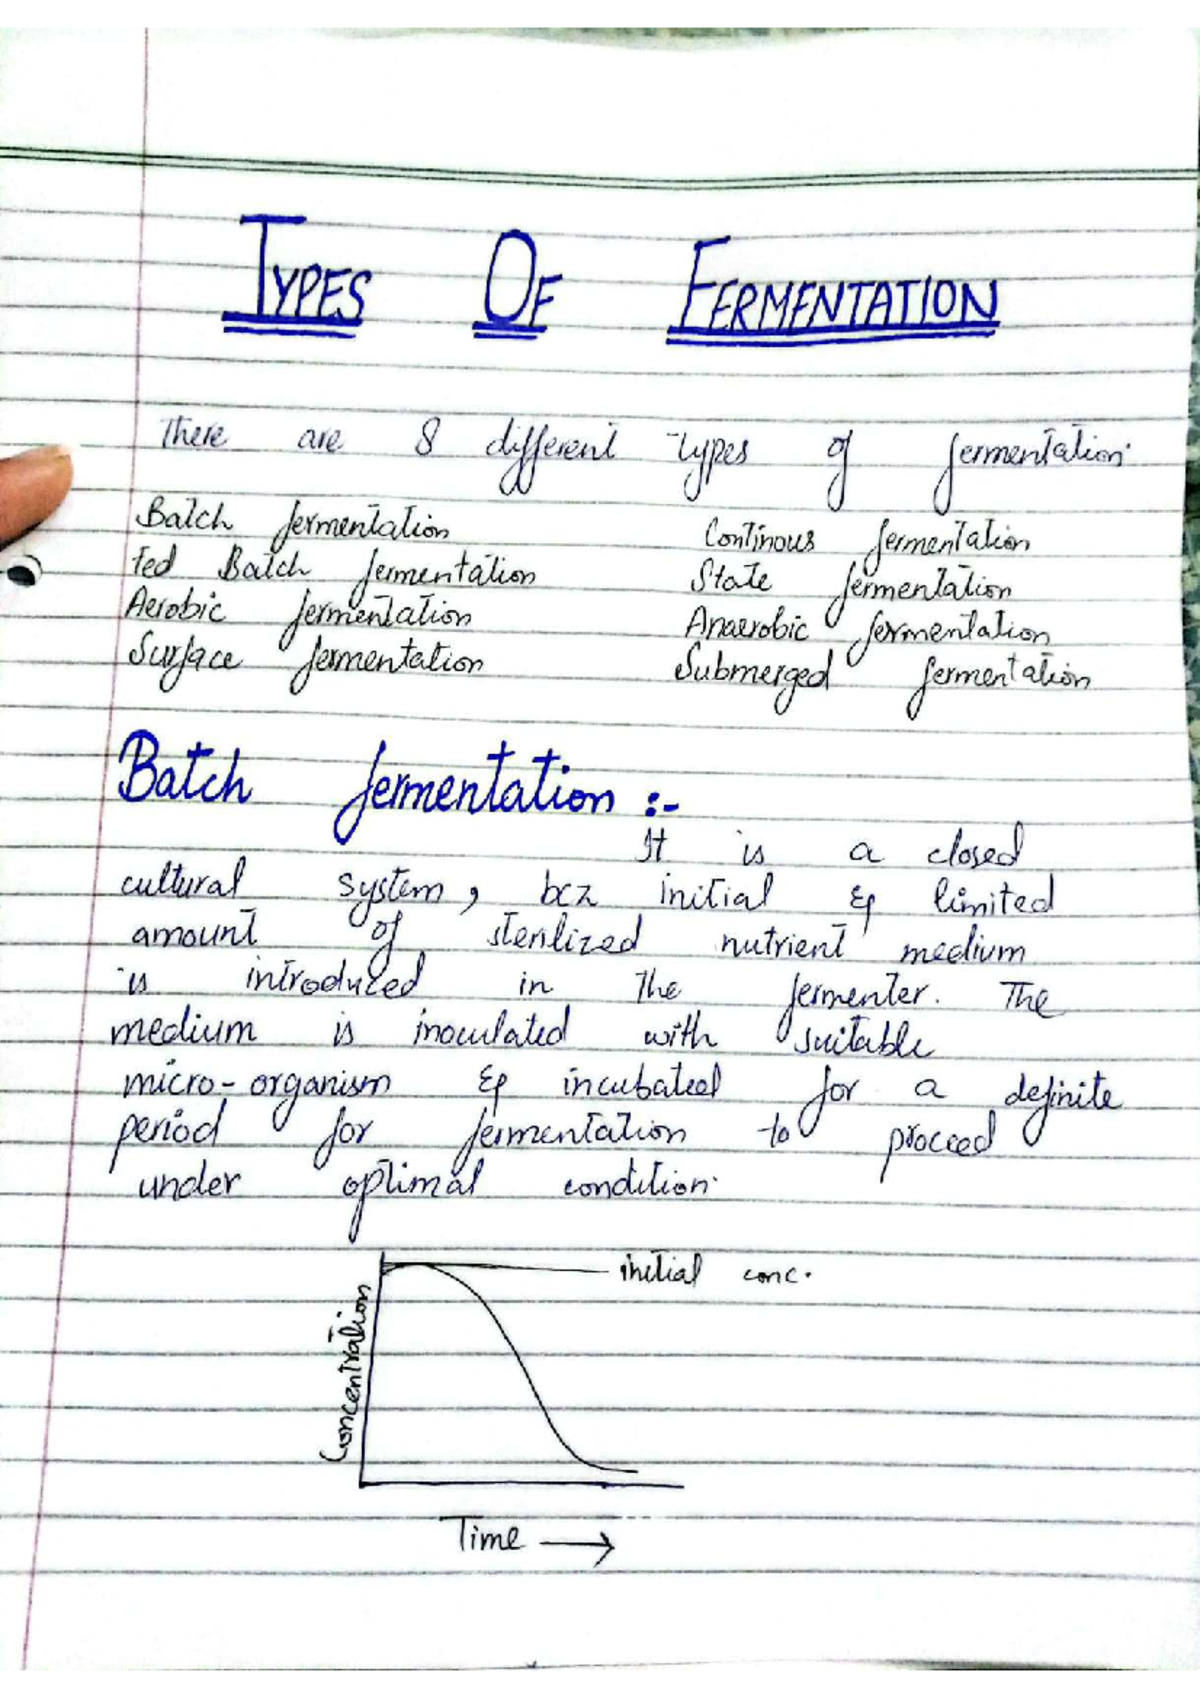 TYPES OF FERMENTATION
There are 8 different types of fermentation.
Batch fermentation Continous fermentation
Fed Batch fermentation State fermentation
Aerobic fermentation Anaerobic fermentation
Surface fermentation Submerged fermentation
Batch fermentation :-
It is a closed
cultural system, bcz initial & limited
amount of sterilized nutrient medium
is introduced in the fermenter. The
medium is inoculated with suitable
micro-organism & incubated for a definite
period for fermentation to proceed
under optimal condition.
initial conc.
Concentration
Time →